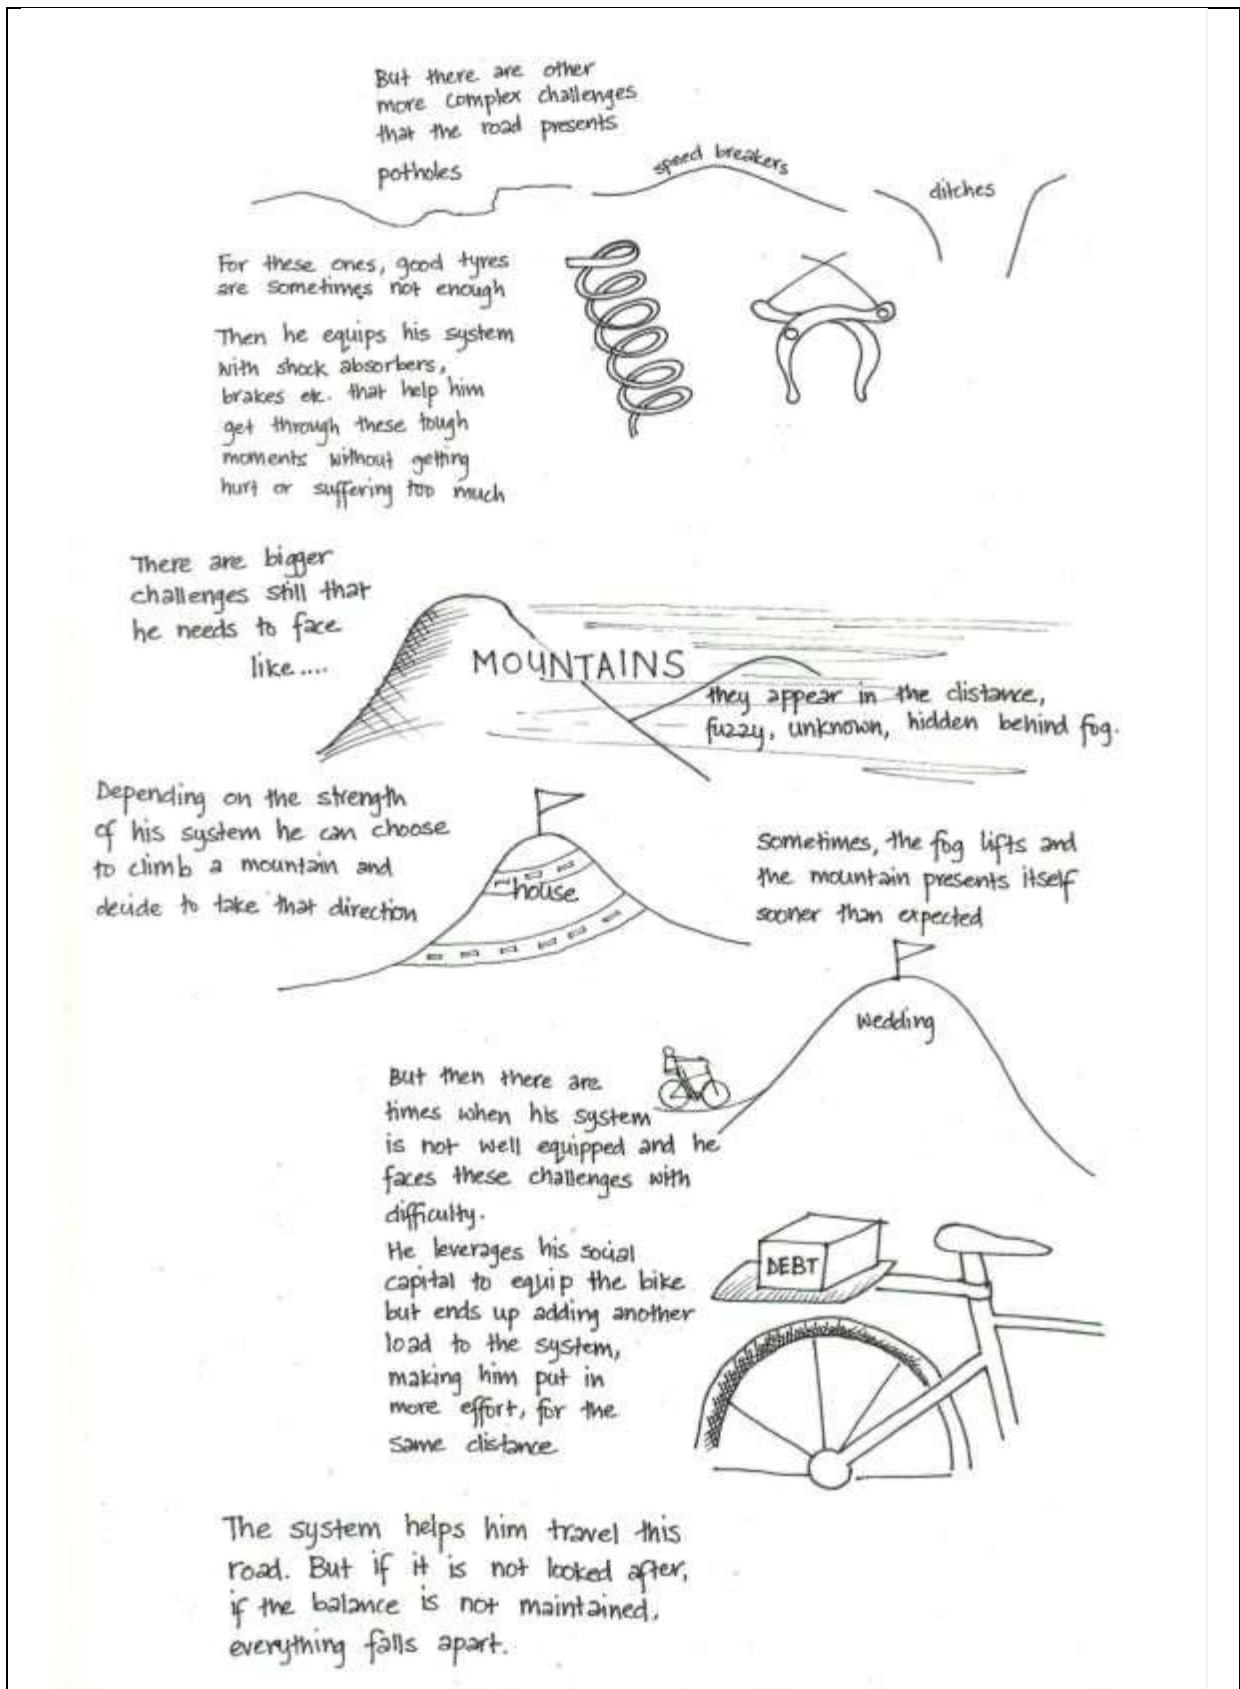 But there are other
more complex challenges
that the road presents
potholes
speed breakers
ditches
For these ones, good tyres
are sometimes not enough
Then he equips his system
with shock absorbers,
brakes etc. that help him
get through these tough
moments without getting
hurt or suffering too much
There are bigger
challenges still that
he needs to face
like....
MOUNTAINS
they appear in the distance,
fuzzy, unknown, hidden behind fog.
Depending on the strength
of his system he can choose
to climb a mountain and
decide to take that direction
house
Sometimes, the fog lifts and
the mountain presents itself
sooner than expected
Wedding
But then there are
times when his system
is not well equipped and he
faces these challenges with
difficulty.
He leverages his social
capital to equip the bike
but ends up adding another
load to the system,
making him put in
more effort, for the
same distance
DEBT
The system helps him travel this
road. But if it is not looked after,
if the balance is not maintained.
everything falls apart.